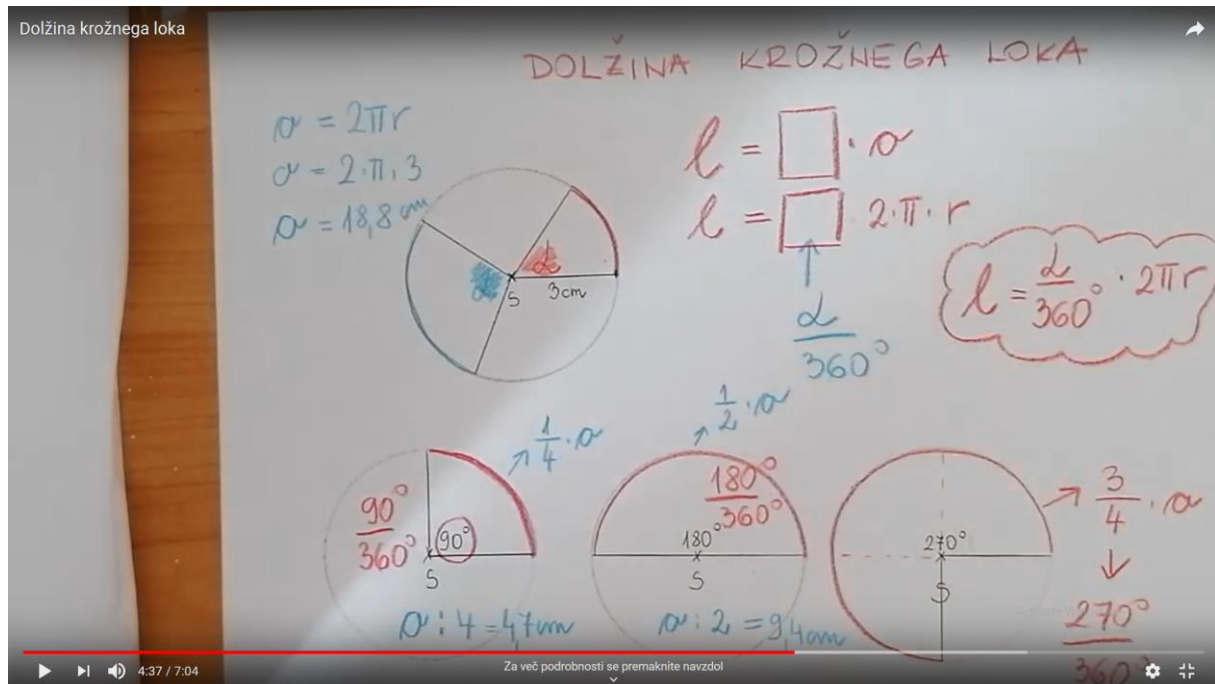 Dolžina krožnega loka
DOLŽINA KROŽNEGA LOKA
o = 2πr
o = 2·π·3
o = 18,8 cm
l = □ · o
l = □ · 2·π·r
α
360°
l = α/360° · 2πr
α
α
S
3cm
1/4 · o
90°/360°
90°
S
o : 4 = 4,7cm
1/2 · o
180°/360°
180°
S
o : 2 = 9,4cm
3/4 · o
270°
S
270°
360°
4:37 / 7:04
Za več podrobnosti se premaknite navzdol